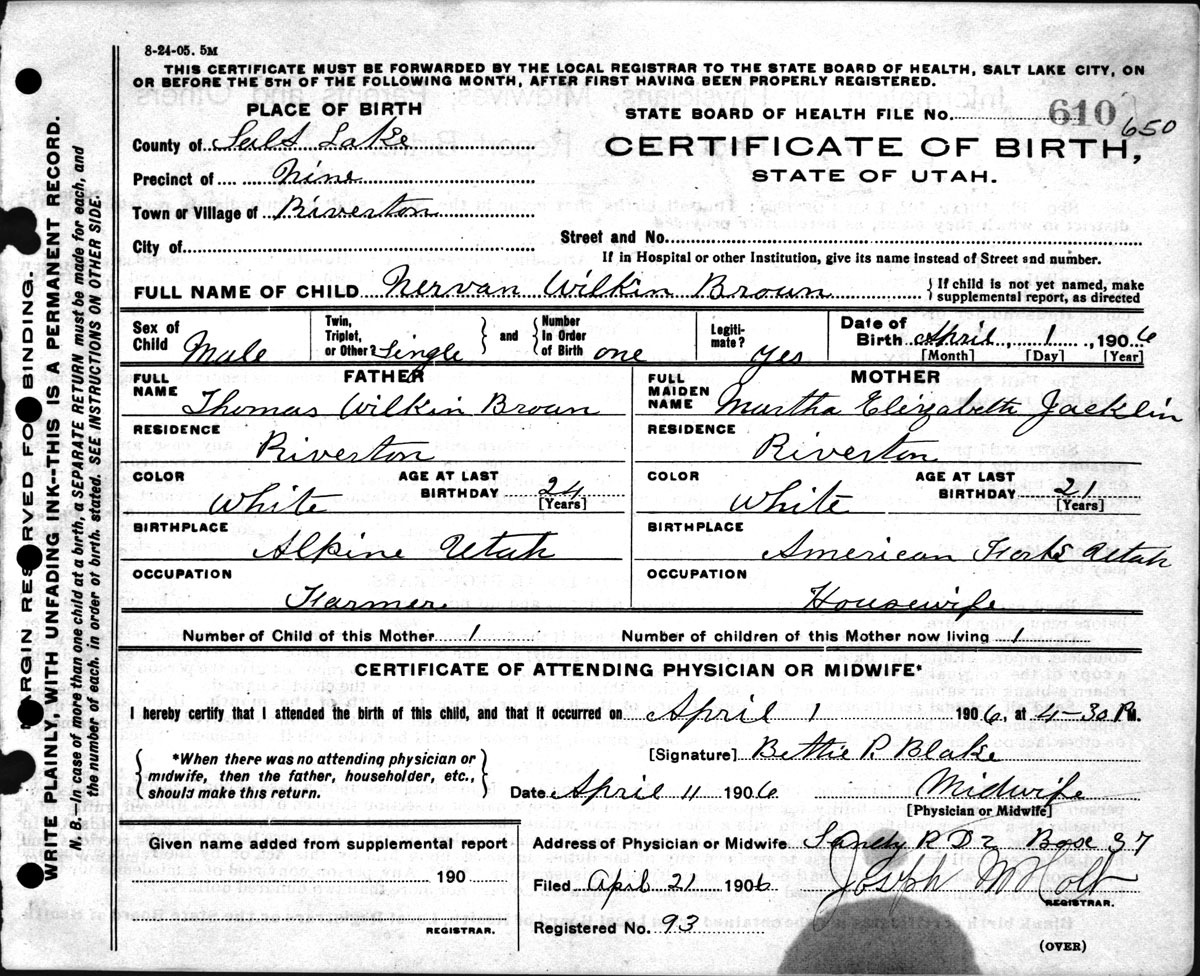 8-24-05. 5M
THIS CERTIFICATE MUST BE FORWARDED BY THE LOCAL REGISTRAR TO THE STATE BOARD OF HEALTH, SALT LAKE CITY, ON
OR BEFORE THE 5TH OF THE FOLLOWING MONTH, AFTER FIRST HAVING BEEN PROPERLY REGISTERED.
PLACE OF BIRTH
STATE BOARD OF HEALTH FILE No. 610 650
County of Salt Lake
CERTIFICATE OF BIRTH,
Precinct of Nine
STATE OF UTAH.
Town or Village of Riverton
City of
Street and No.
If in Hospital or other Institution, give its name instead of Street and number.
FULL NAME OF CHILD Nervan Wilkin Brown
If child is not yet named, make
supplemental report, as directed
Sex of
Child Male
Twin,
Triplet,
or Other? Single
and
Number
In Order
of Birth one
Legiti-
mate? Yes
Date of
Birth April, 1, 1906
[Month] [Day] [Year]
FATHER
FULL
NAME Thomas Wilkin Brown
RESIDENCE
Riverton
COLOR
White
AGE AT LAST
BIRTHDAY 24
[Years]
BIRTHPLACE
Alpine Utah
OCCUPATION
Farmer.
MOTHER
FULL
MAIDEN
NAME Martha Elizabeth Jacklin
RESIDENCE
Riverton
COLOR
White
AGE AT LAST
BIRTHDAY 21
[Years]
BIRTHPLACE
American Fork Utah
OCCUPATION
Housewife
Number of Child of this Mother 1 Number of children of this Mother now living 1
CERTIFICATE OF ATTENDING PHYSICIAN OR MIDWIFE*
I hereby certify that I attended the birth of this child, and that it occurred on April 1 1906, at 4-30 P M.
*When there was no attending physician or
midwife, then the father, householder, etc.,
should make this return.
[Signature] Bettie P. Blake
Date April 11 1906 Midwife
[Physician or Midwife]
Given name added from supplemental report
190
REGISTRAR.
Address of Physician or Midwife Sandy R D 2 Box 37
Filed April 21 1906 Joseph M Holt
REGISTRAR.
Registered No. 93
(OVER)
MARGIN RESERVED FOR BINDING.
WRITE PLAINLY, WITH UNFADING INK--THIS IS A PERMANENT RECORD.
N. B.—In case of more than one child at a birth, a SEPARATE RETURN must be made for each, and
the number of each, in order of birth, stated. SEE INSTRUCTIONS ON OTHER SIDE.